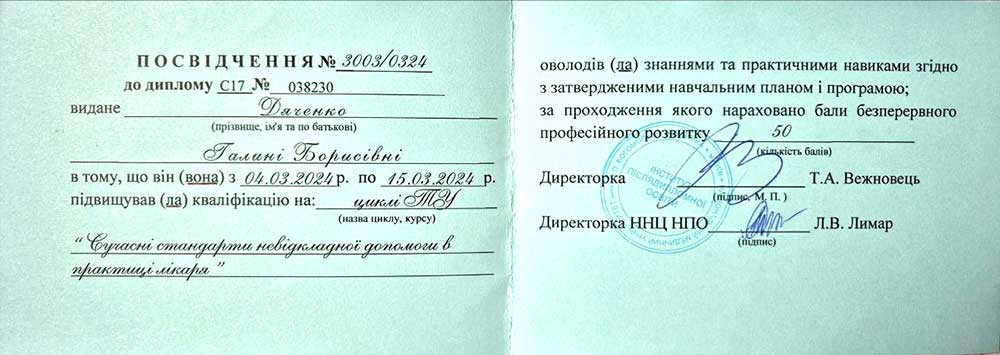 ПОСВІДЧЕННЯ № 3003/0324
до диплому С17 № 038230
видане Дяченко
(прізвище, ім'я та по батькові)
Галині Борисівні
в тому, що він (вона) з 04.03.2024 р. по 15.03.2024 р.
підвищував (ла) кваліфікацію на: циклі ТУ
(назва циклу, курсу)
“Сучасні стандарти невідкладної допомоги в
практиці лікаря”
оволодів (ла) знаннями та практичними навиками згідно
з затвердженими навчальним планом і програмою;
за проходження якого нараховано бали безперервного
професійного розвитку 50
(кількість балів)
Директорка Т.А. Вежновець
(підпис, М. П. )
Директорка ННЦ НПО Л.В. Лимар
(підпис)
ІНСТИТУТ
ПІСЛЯДИПЛОМНОЇ
ОСВІТИ